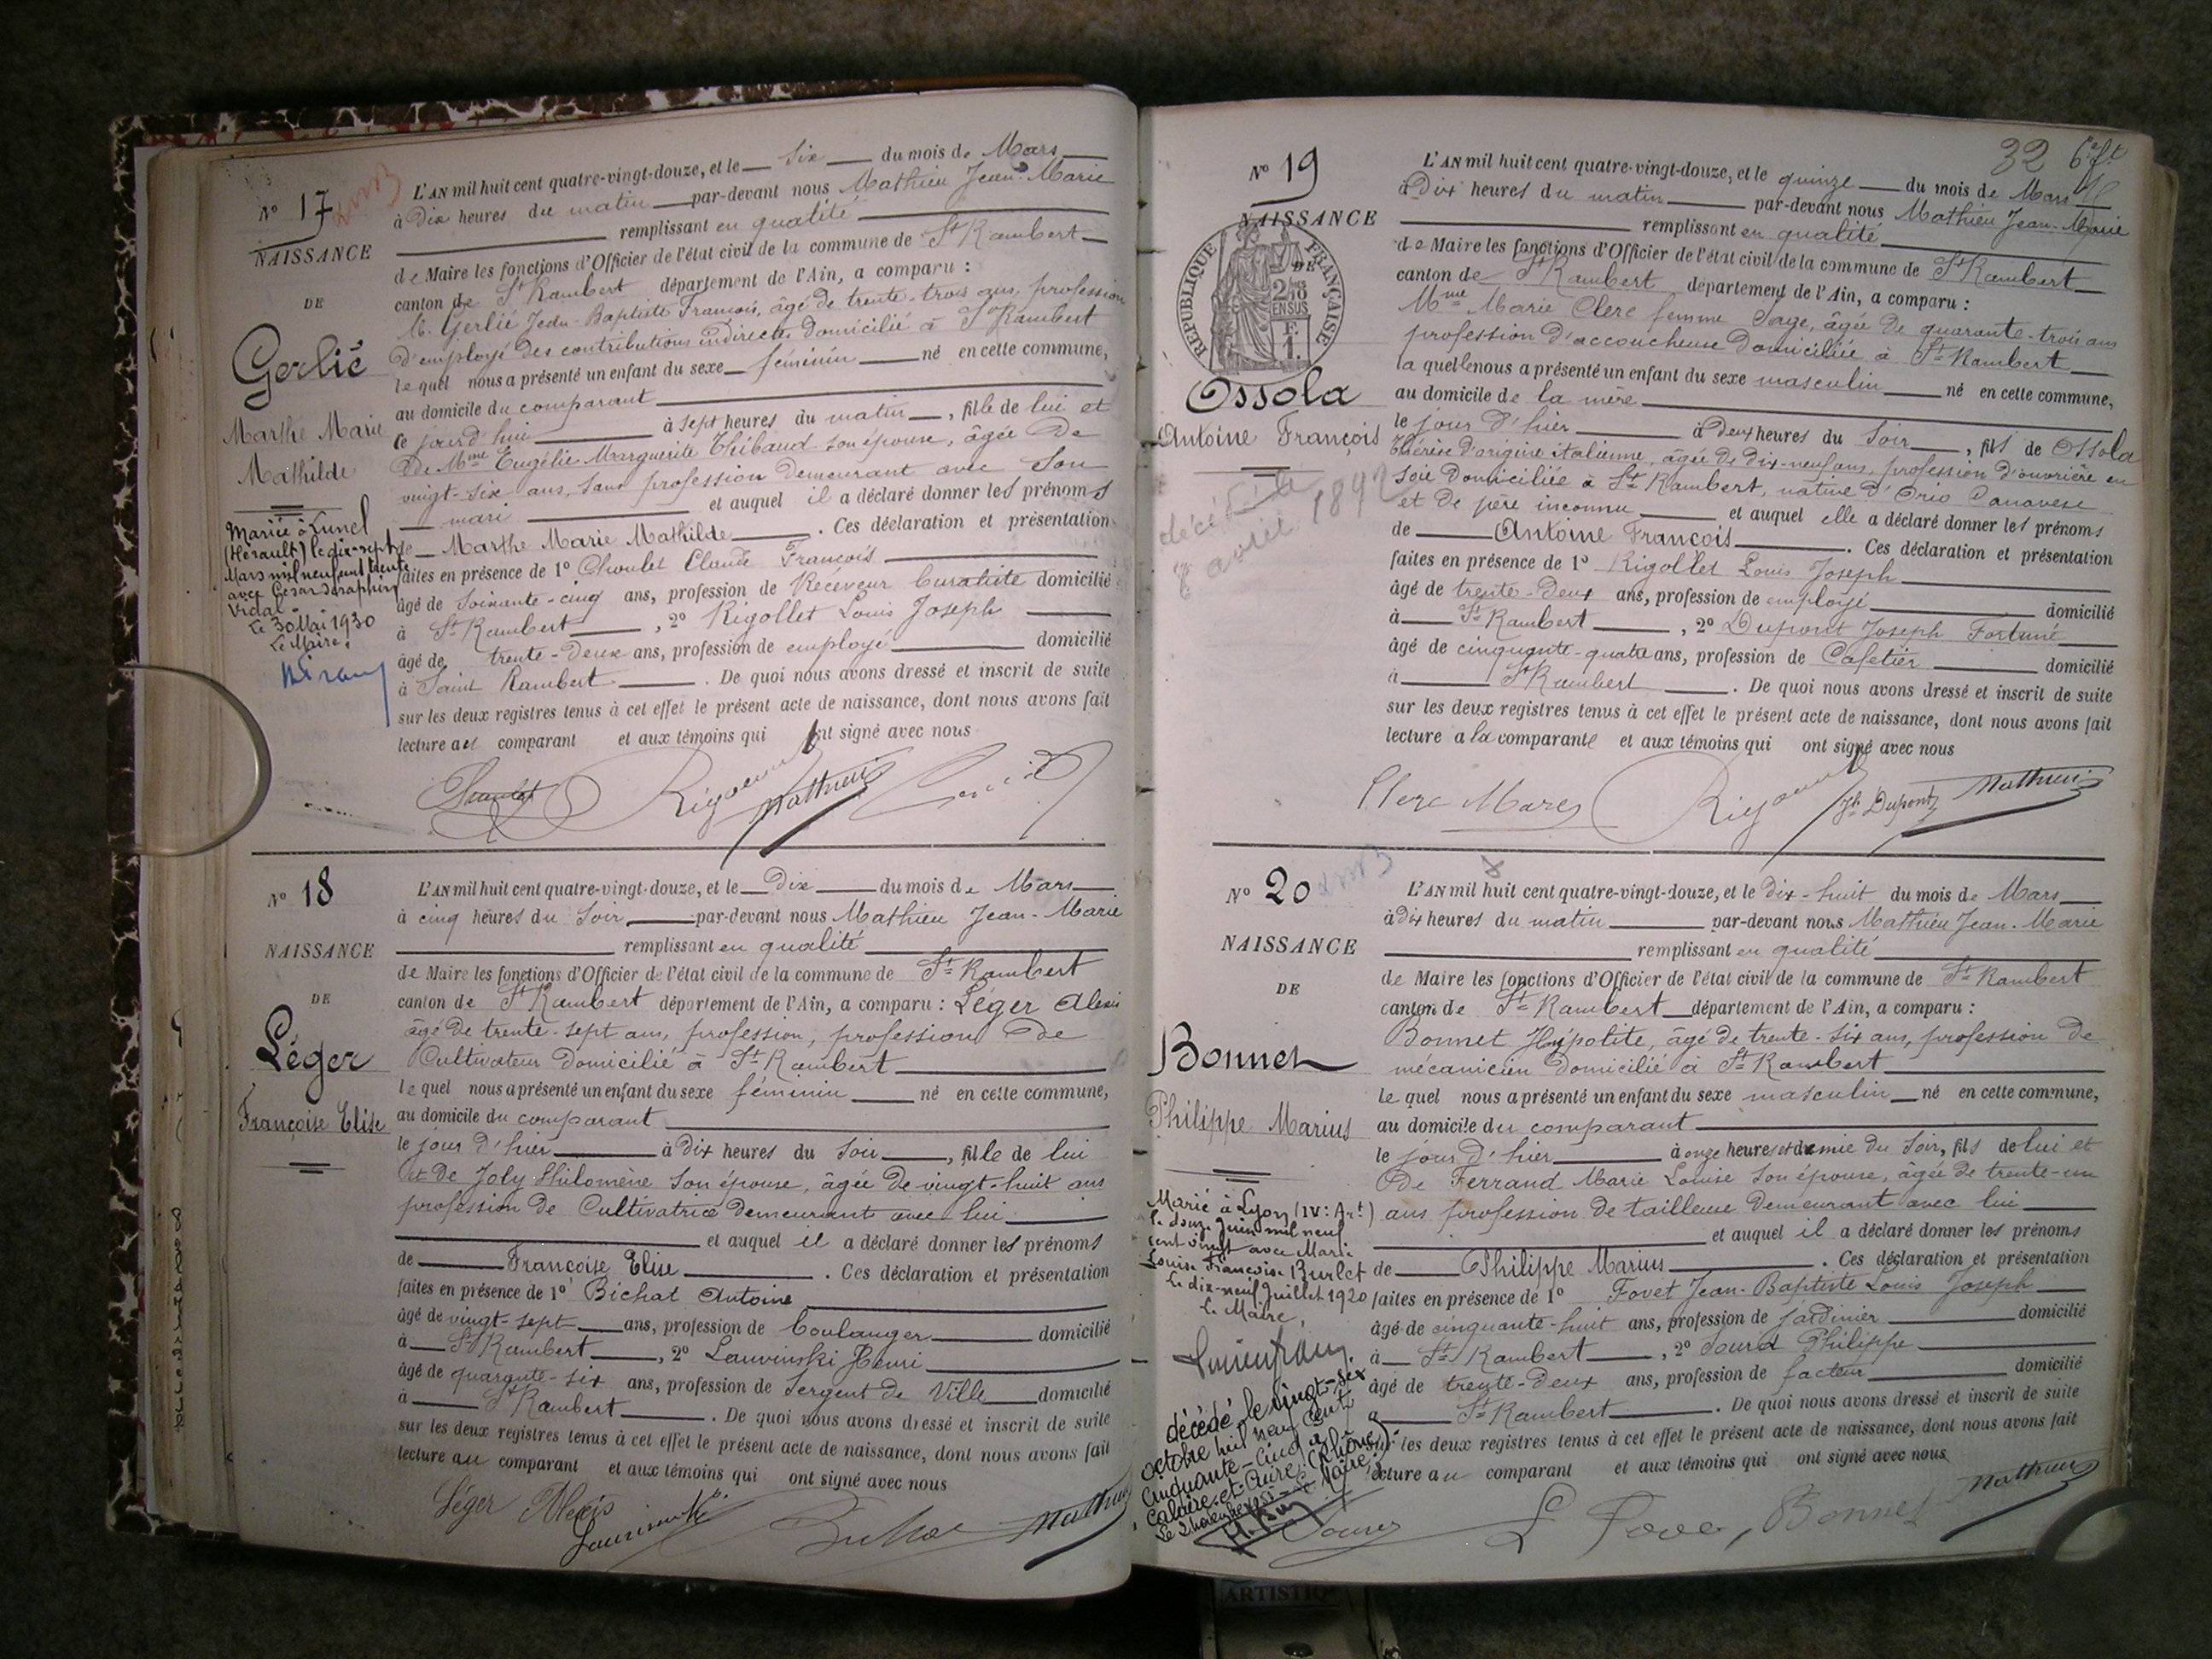 N° 17
NAISSANCE
DE
Gerlié
Marthe Marie
Mathilde
Mariée à Lunel
(Hérault) le dix-sept
Mars mil neuf cent trente
avec César Séraphin
Vidal
Le 30 Mai 1930
Le Maire.
L'AN mil huit cent quatre-vingt-douze, et le six du mois de Mars
à Dix heures du matin par-devant nous Mathieu Jean-Marie
remplissant en qualité
de Maire les fonctions d'Officier de l'état civil de la commune de St Rambert
canton de St Rambert département de l'Ain, a comparu :
M. Gerlié Jean-Baptiste François, âgé de trente-trois ans, profession
d'employé des contributions indirectes domicilié à St Rambert
lequel nous a présenté un enfant du sexe féminin né en cette commune,
au domicile du comparant
ce jourd'hui à sept heures du matin, fille de lui et
de Mme Eugélie Marguerite Thébaud son épouse, âgée de
vingt-six ans, sans profession demeurant avec son
mari et auquel il a déclaré donner les prénoms
de Marthe Marie Mathilde. Ces déclaration et présentation
faites en présence de 1° Choulet Claude François
âgé de soixante-cinq ans, profession de Receveur buraliste domicilié
à St Rambert, 2° Rigollet Louis Joseph
âgé de trente-deux ans, profession de employé domicilié
à Saint Rambert. De quoi nous avons dressé et inscrit de suite
sur les deux registres tenus à cet effet le présent acte de naissance, dont nous avons fait
lecture au comparant et aux témoins qui ont signé avec nous
Mathieu
N° 18
NAISSANCE
DE
Léger
Françoise Elise
L'AN mil huit cent quatre-vingt-douze, et le Dix du mois de Mars
à cinq heures du soir par-devant nous Mathieu Jean-Marie
remplissant en qualité
de Maire les fonctions d'Officier de l'état civil de la commune de St Rambert
canton de St Rambert département de l'Ain, a comparu : Léger Alexis
âgé de trente-sept ans, profession, profession de
Cultivateur domicilié à St Rambert
lequel nous a présenté un enfant du sexe féminin né en cette commune,
au domicile du comparant
le jour d'hier à dix heures du soir, fille de lui
et de Joly Philomène son épouse, âgée de vingt-huit ans
profession de Cultivatrice demeurant avec lui
et auquel il a déclaré donner les prénoms
de Françoise Elise. Ces déclaration et présentation
faites en présence de 1° Bichat Antoine
âgé de vingt-sept ans, profession de boulanger domicilié
à St Rambert, 2° Lauvinski Henri
âgé de quarante-six ans, profession de Sergent de Ville domicilié
à St Rambert. De quoi nous avons dressé et inscrit de suite
sur les deux registres tenus à cet effet le présent acte de naissance, dont nous avons fait
lecture au comparant et aux témoins qui ont signé avec nous
Léger Alexis
Mathieu
32
N° 19
NAISSANCE
DE
REPUBLIQUE FRANÇAISE
Ossola
Antoine François
décédé le
avril 1892
L'AN mil huit cent quatre-vingt-douze, et le quinze du mois de Mars
à Dix heures du matin par-devant nous Mathieu Jean-Marie
remplissant en qualité
de Maire les fonctions d'Officier de l'état civil de la commune de St Rambert
canton de St Rambert département de l'Ain, a comparu :
Mme Marie Clerc femme Sage, âgée de quarante-trois ans
profession d'accoucheuse domiciliée à St Rambert
laquelle nous a présenté un enfant du sexe masculin né en cette commune,
au domicile de la mère
le jour d'hier à deux heures du soir, fils de Ossola
Thérèse d'origine italienne, âgée de dix-neuf ans, profession d'ouvrière en
soie domiciliée à St Rambert, native d'Orio Canavese
et de père inconnu et auquel elle a déclaré donner les prénoms
de Antoine François. Ces déclaration et présentation
faites en présence de 1° Rigollet Louis Joseph
âgé de trente-deux ans, profession de employé domicilié
à St Rambert, 2° Dupont Joseph Fortuné
âgé de cinquante-quatre ans, profession de Cafetier domicilié
à St Rambert. De quoi nous avons dressé et inscrit de suite
sur les deux registres tenus à cet effet le présent acte de naissance, dont nous avons fait
lecture a la comparante et aux témoins qui ont signé avec nous
Jh Dupont Mathieu
N° 20
NAISSANCE
DE
Bonnet
Philippe Marius
Marié à Lyon (IV: Art)
le douze Juin mil neuf
cent vingt avec Marie
Louise Françoise Burlet
le dix-neuf Juillet 1920
Le Maire,
décédé le vingt-six
octobre mil neuf cent
cinquante-cinq à
Caluire-et-Cuire (Rhône)
L'AN mil huit cent quatre-vingt-douze, et le dix-huit du mois de Mars
à dix heures du matin par-devant nous Mathieu Jean-Marie
remplissant en qualité
de Maire les fonctions d'Officier de l'état civil de la commune de St Rambert
canton de St Rambert département de l'Ain, a comparu :
Bonnet Hypolite, âgé de trente-six ans, profession de
mécanicien domicilié à St Rambert
lequel nous a présenté un enfant du sexe masculin né en cette commune,
au domicile du comparant
le jour d'hier à onze heures et demie du soir, fils de lui et
de Ferrand Marie Louise son épouse, âgée de trente-un
ans profession de tailleuse demeurant avec lui
et auquel il a déclaré donner les prénoms
de Philippe Marius. Ces déclaration et présentation
faites en présence de 1° Fovet Jean-Baptiste Louis Joseph
âgé de cinquante-huit ans, profession de jardinier domicilié
à St Rambert, 2° Sourd Philippe
âgé de trente-deux ans, profession de facteur domicilié
à St Rambert. De quoi nous avons dressé et inscrit de suite
sur les deux registres tenus à cet effet le présent acte de naissance, dont nous avons fait
lecture au comparant et aux témoins qui ont signé avec nous
Bonnet Mathieu
ARTISTRA